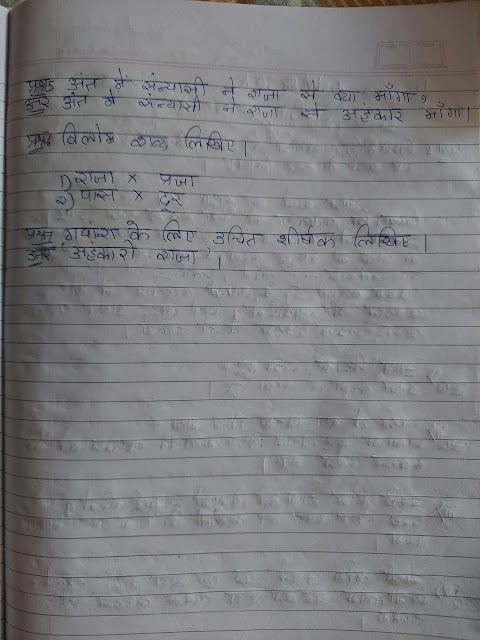 प्रश्न5 अंत में संन्यासी ने राजा से क्या माँगा?
उत्तर अंत में संन्यासी ने राजा से अहंकार माँगा।
प्रश्न6 विलोम शब्द लिखिए।
1) राजा × प्रजा
2) पास × दूर
प्रश्न7 गद्यांश के लिए उचित शीर्षक लिखिए।
उत्तर 'अहंकारी राजा'।